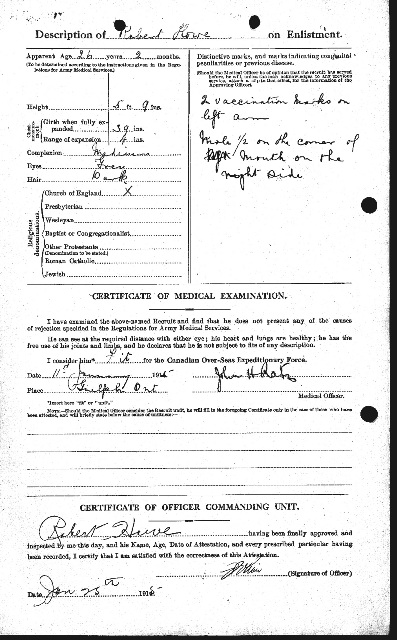 Description of Robert Howe on Enlistment.
Apparent Age 26 years 2 months.
(To be determined according to the instructions given in the Regulations for Army Medical Services.)
Height 5 ft 9 ins.
Chest measurement
Girth when fully expanded 39 ins.
Range of expansion 4 ins.
Complexion Medium
Eyes
Hair Dark
Religious denominations.
Church of England X
Presbyterian
Wesleyan
Baptist or Congregationalist
Other Protestants
(Denomination to be stated.)
Roman Catholic
Jewish
Distinctive marks, and marks indicating congenital
peculiarities or previous disease.
(Should the Medical Officer be of opinion that the recruit has served
before, he will, unless the man acknowledges to any previous
service, attach a slip to that effect, for the information of the
Approving Officer).
2 vaccination marks on
left arm
Mole 1/2 on the corner of
mouth on the
right side
CERTIFICATE OF MEDICAL EXAMINATION.
I have examined the above-named Recruit and find that he does not present any of the causes
of rejection specified in the Regulations for Army Medical Services.
He can see at the required distance with either eye; his heart and lungs are healthy; he has the
free use of his joints and limbs, and he declares that he is not subject to fits of any description.
I consider him* Fit for the Canadian Over-Seas Expeditionary Force.
Date 11th January 1915
Place Guelph Ont
John H
Medical Officer.
*Insert here "fit" or "unfit."
NOTE.—Should the Medical Officer consider the Recruit unfit, he will fill in the foregoing Certificate only in the case of those who have
been attested, and will briefly state below the cause of unfitness:—
CERTIFICATE OF OFFICER COMMANDING UNIT.
Robert Howe having been finally approved and
inspected by me this day, and his Name, Age, Date of Attestation, and every prescribed particular having
been recorded, I certify that I am satisfied with the correctness of this Attestation.
(Signature of Officer)
Date Jan 25th 1915